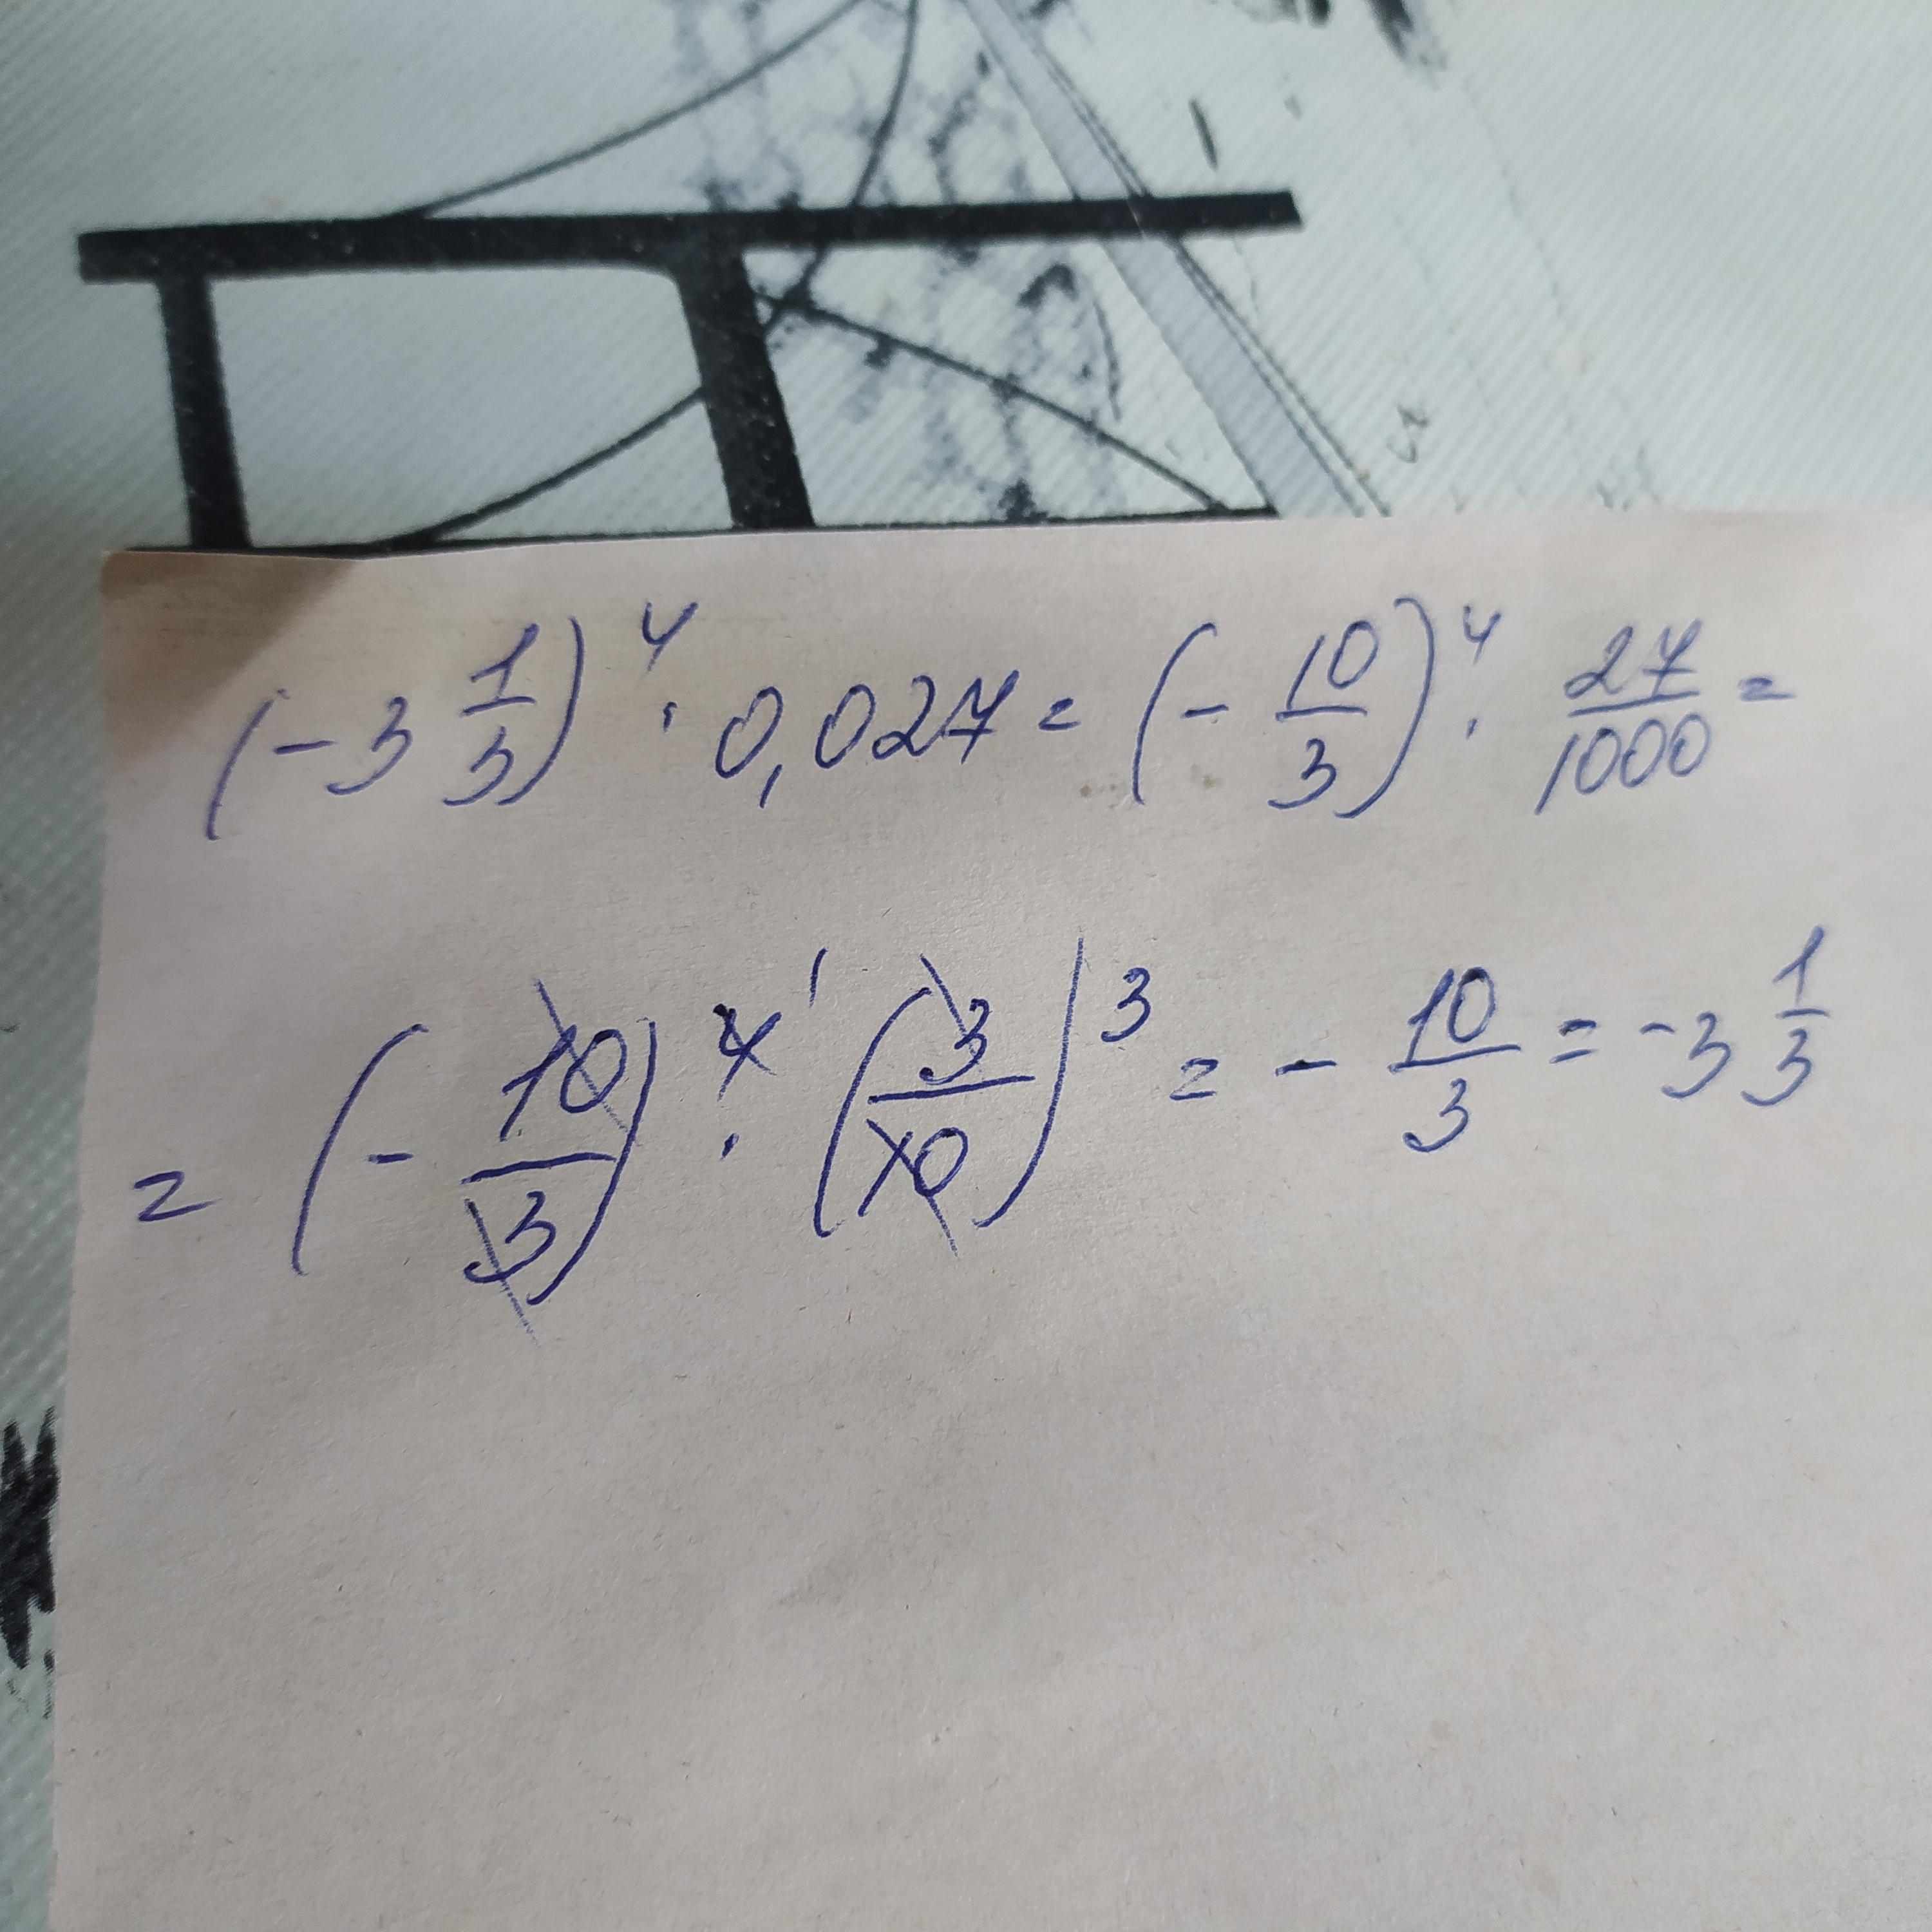 (-3 1/3)^4 · 0,027 = (- 10/3)^4 · 27/1000 =
= (- 10/3)^4 1 · (3/10)^3 = - 10/3 = -3 1/3